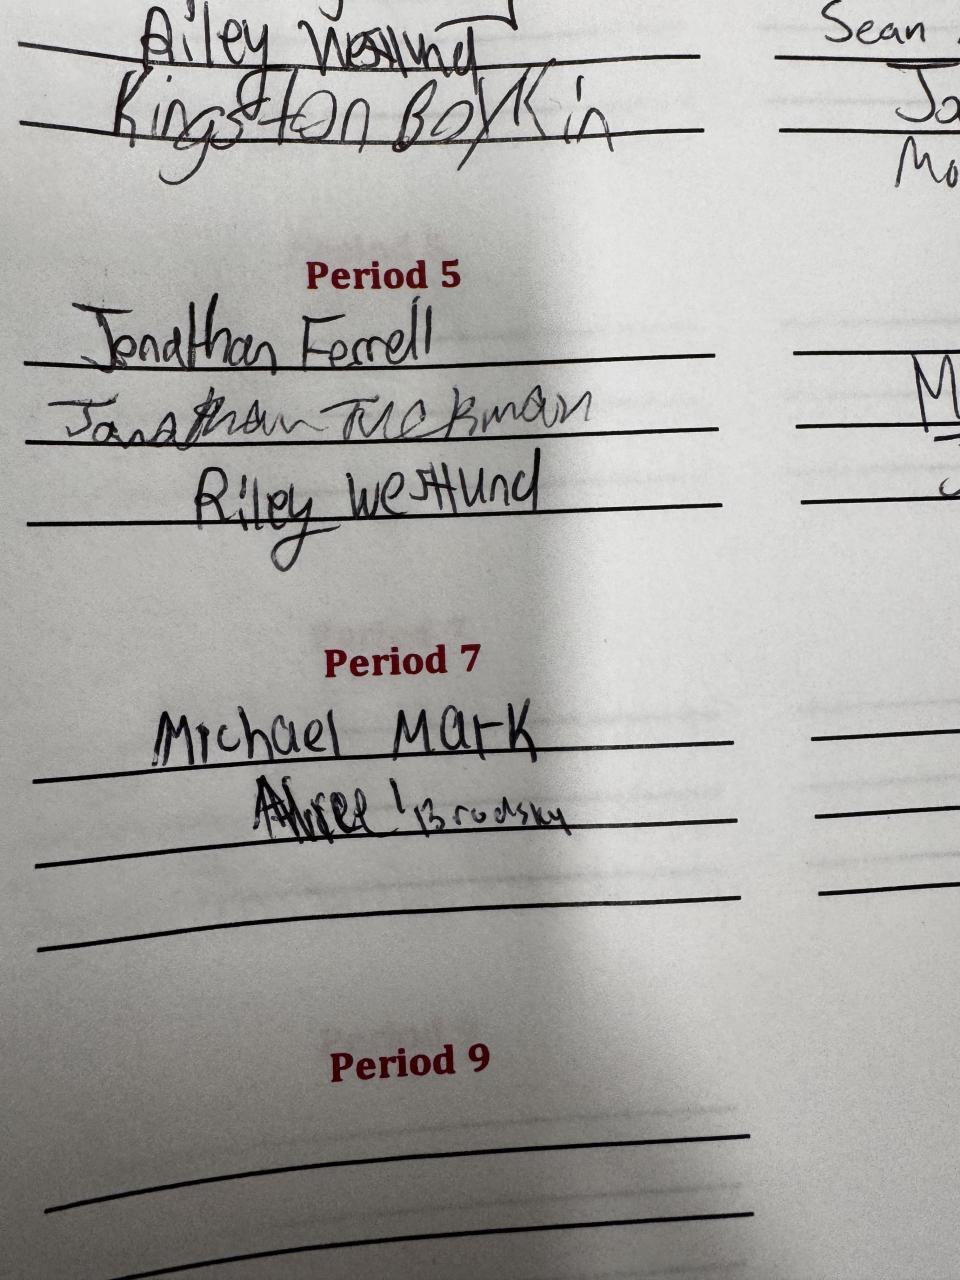 Riley Westlund
Kingston Boykin
Period 5
Jonathan Ferrell
Jonathan Tuckman
Riley Westlund
Period 7
Michael Mark
Brodsky
Period 9
Sean
Ja
Mo
M